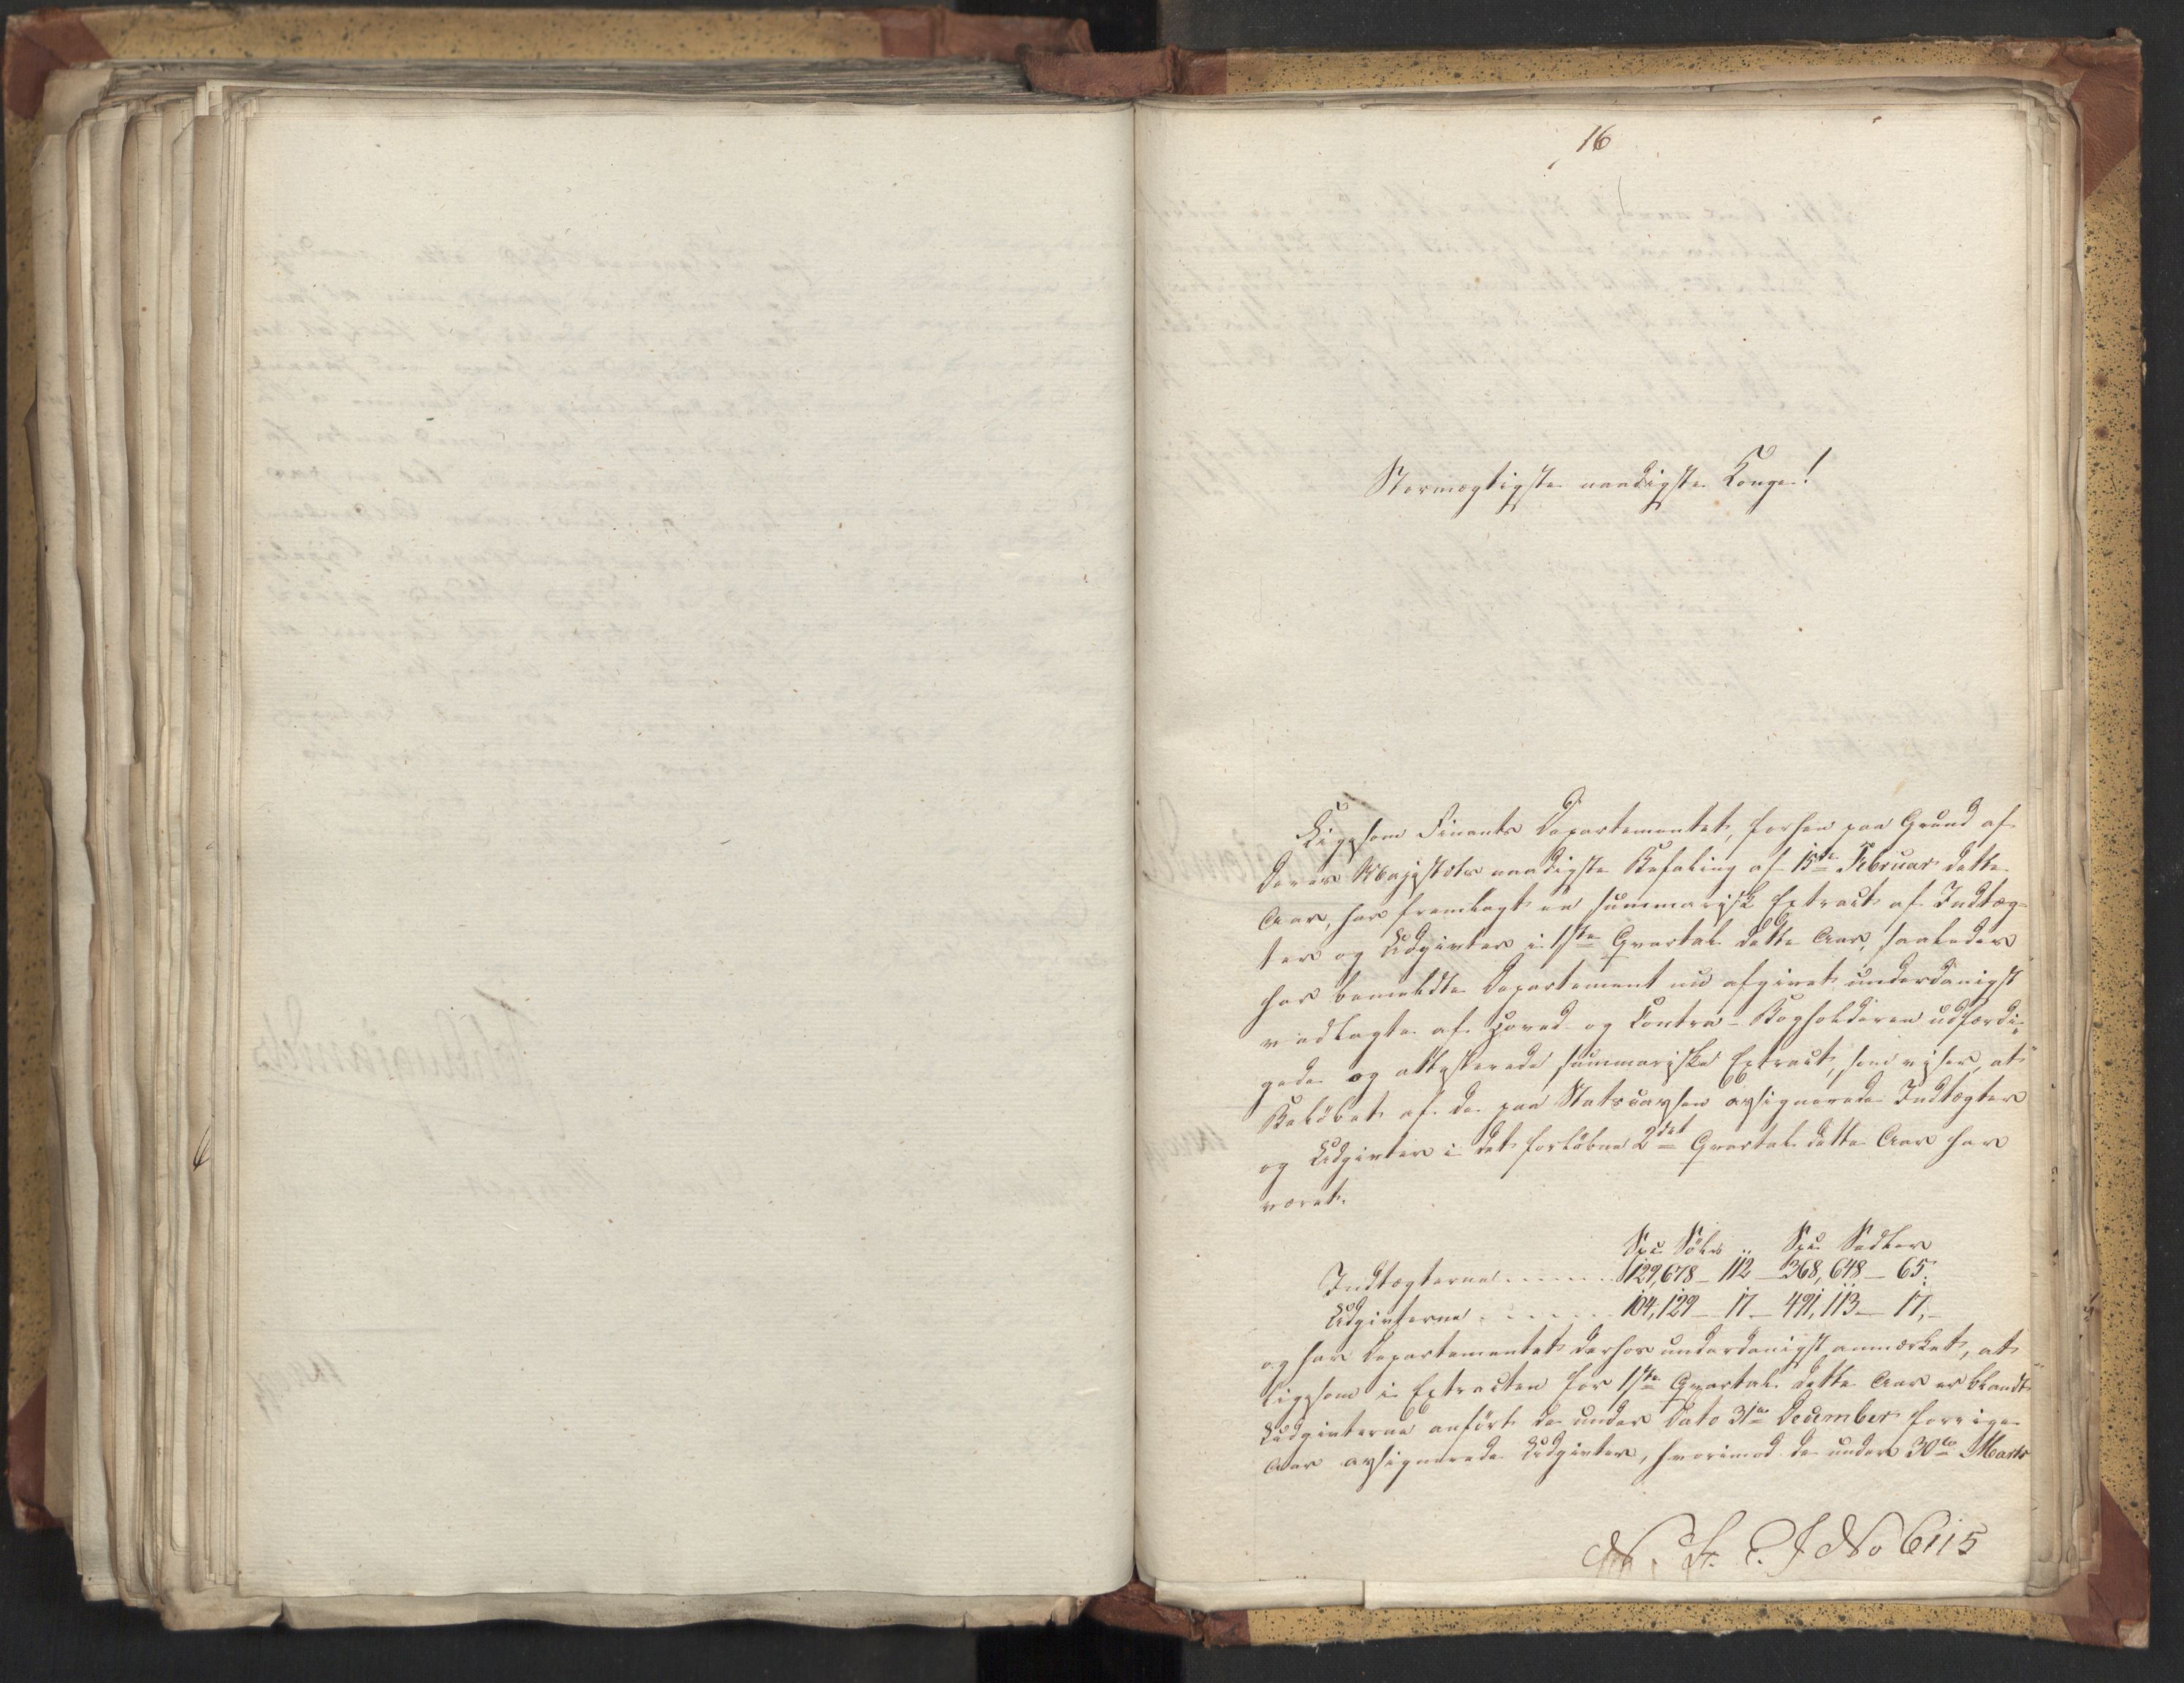 16
Stormægtigste naadigste Konge!
Ligesom Finants Departementet, forhen paa Grund af
Deres Majestæts naadigste Befaling af 15de Februar dette
Aar, har fremlagt en summarisk Extract af Indtæg-
ter og Udgivter i 1ste Qvartal dette Aar, saaledes
har bemeldte Departement nu afgivet underdanigst
vedlagte af Hoved- og Contra-Bogholderen udfærdi-
gede og attesterede summariske Extract, som viser, at
Beløbet af de paa Statscassen assignerede Indtægter
og Udgivter i det forløbne 2det Qvartal dette Aar har
været.
Spc. Sølv .. Spc. Sedler
Indtægterne ...... 129,678 - 112 - 368,648 - 65.
Udgivterne ...... 104,129 - 17 - 491,113 - 17.
og har Departementet derhos underdanigst anmærket, at
ligesom i Extracten for 1ste Qvartal dette Aar er blandt
Udgivterne anført de under Dato 31te December forrige
Aar assignerede Udgivter, hvorimod de under 30te Marts
No 6115